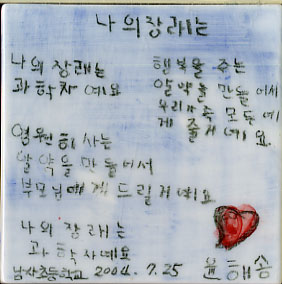 나의장래는
나의 장래는
과학자 예요
영원히 사는
알약을 만들어서
부모님에게 드릴거예요
행복을 주는
알약을 만들어서
우리가족 모두에
게 줄거예요.
나의 장래는
과학자예요
남산초등학교 2004. 7.25 윤해송